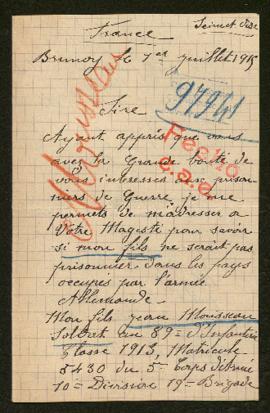 France
Seine et Oise
Brunoy le 1er juillet 1915
97941
Mousseau
Sire
Ayant appris que vous
avez la Grande bonté de
vous interesser aux prison-
niers de Guerre, je me
permets de m'adresser a
Votre Magesté pour savoir
si mon fils ne serait pas
prisonnier dans les pays
occupés par l'armée
Allemande.
Mon fils jean Mousseau
Soldat au 89e d'Infanterie
Classe 1913, Matricule
5430 du 5e Corps d'Armée
10e Division 19e Brigade